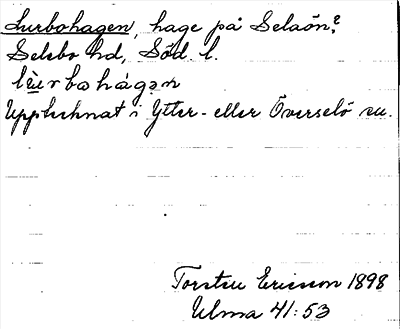 Lurbohagen, hage på Selaön?
Selebo hd, Söd. l.
lùrbohágən
Upptecknat i Ytter- eller Överselö sn.
Torsten Ericsson 1898
Ulma 41:53